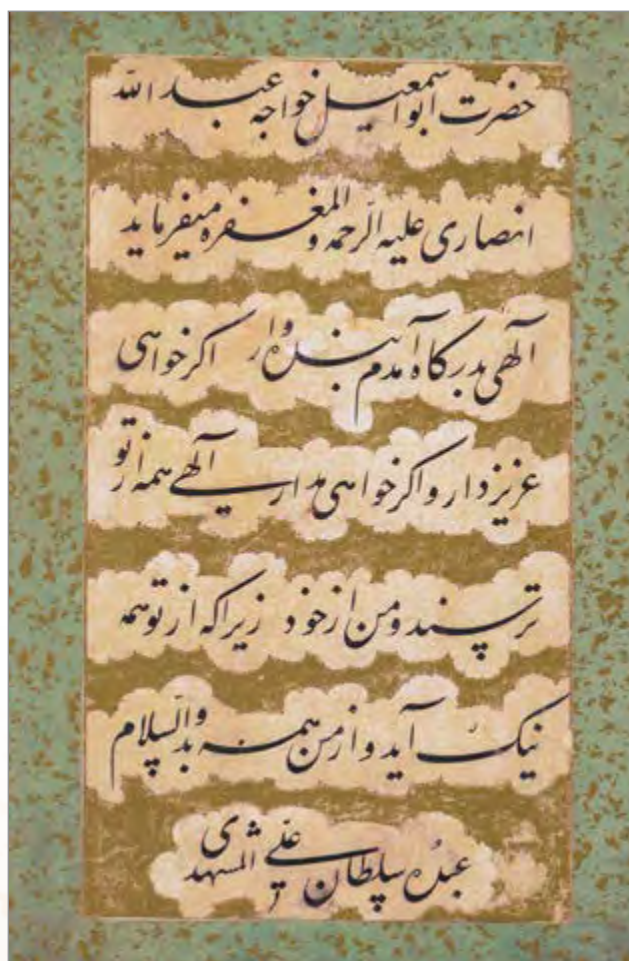 حضرت ابو اسمعیل خواجه عبد الله
انصاری علیه الرّحمه و المغفره میفرماید
آلهی بدرگاه آمدم بنده وار اکر خواهی
عزیز دار و اکر خواهی مدار آلهی همه از تو
ترسند و من از خود زیرا که از تو همه
نیک آید و از من همه بد و السّلام
عبده سلطان علی المشهدی